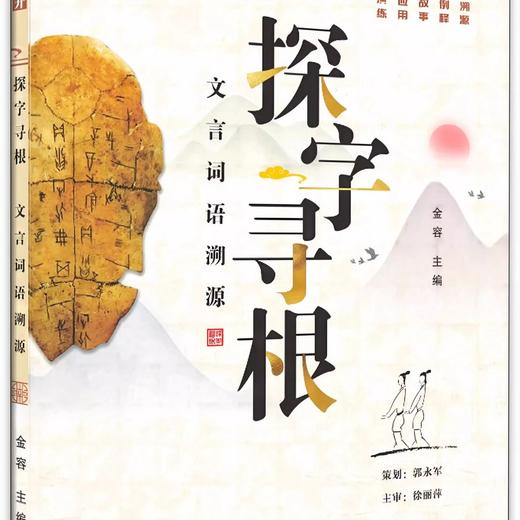 探字寻根
文言词语溯源
金容 主编
溯源
例释
故事
应用
练
策划：郭永军
主审：徐丽萍
探字寻根 文言词语溯源
金容 主编